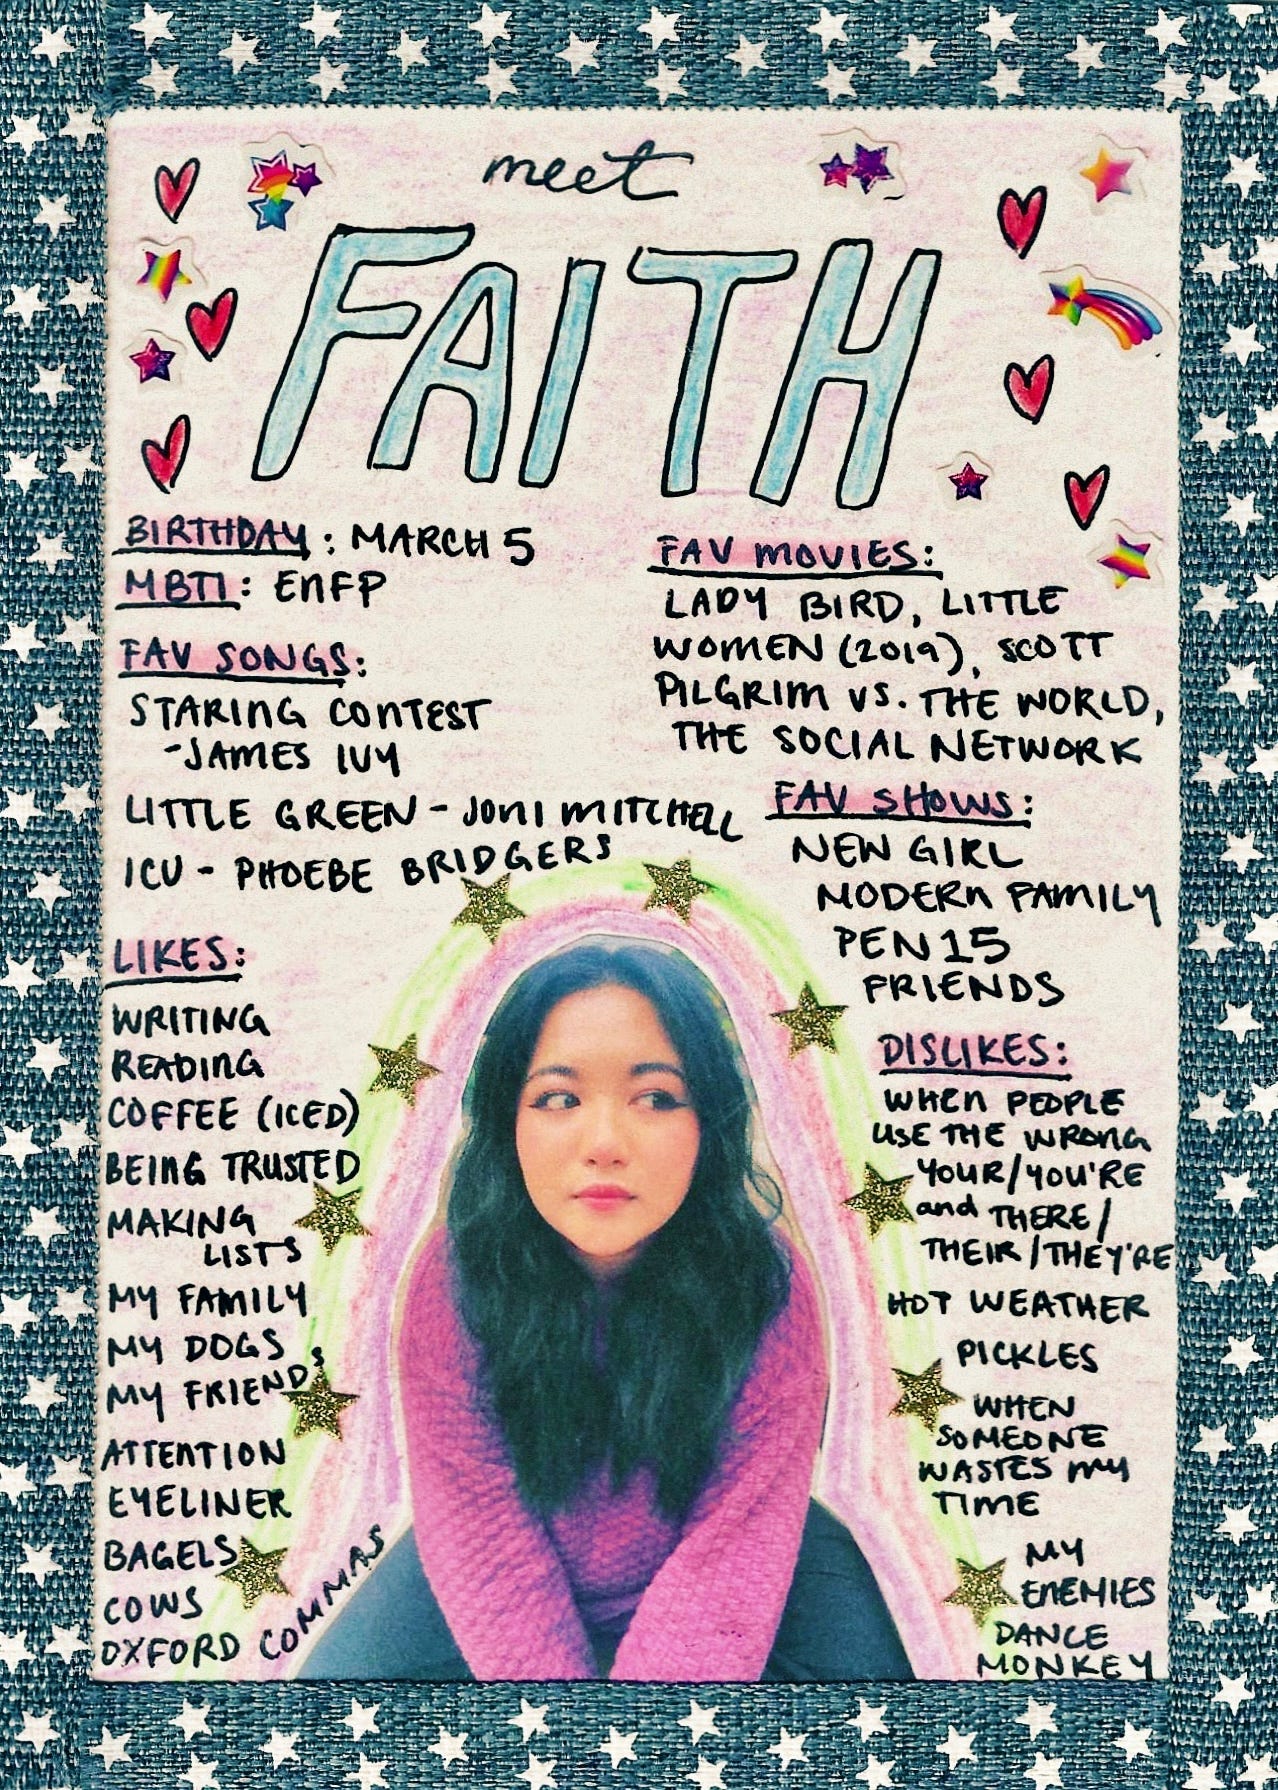 meet
FAITH
BIRTHDAY: MARCH 5
MBTI: ENFP
FAV SONGS:
STARING CONTEST
-JAMES IVY
LITTLE GREEN - JONI MITCHELL
ICU - PHOEBE BRIDGERS
LIKES:
WRITING
READING
COFFEE (ICED)
BEING TRUSTED
MAKING
LISTS
MY FAMILY
MY DOGS
MY FRIENDS
ATTENTION
EYELINER
BAGELS
COWS
OXFORD COMMAS
FAV MOVIES:
LADY BIRD, LITTLE
WOMEN (2019), SCOTT
PILGRIM VS. THE WORLD,
THE SOCIAL NETWORK
FAV SHOWS:
NEW GIRL
MODERN FAMILY
PEN15
FRIENDS
DISLIKES:
WHEN PEOPLE
USE THE WRONG
YOUR/YOU'RE
and THERE/
THEIR/THEY'RE
HOT WEATHER
PICKLES
WHEN
SOMEONE
WASTES MY
TIME
MY
ENEMIES
DANCE
MONKEY